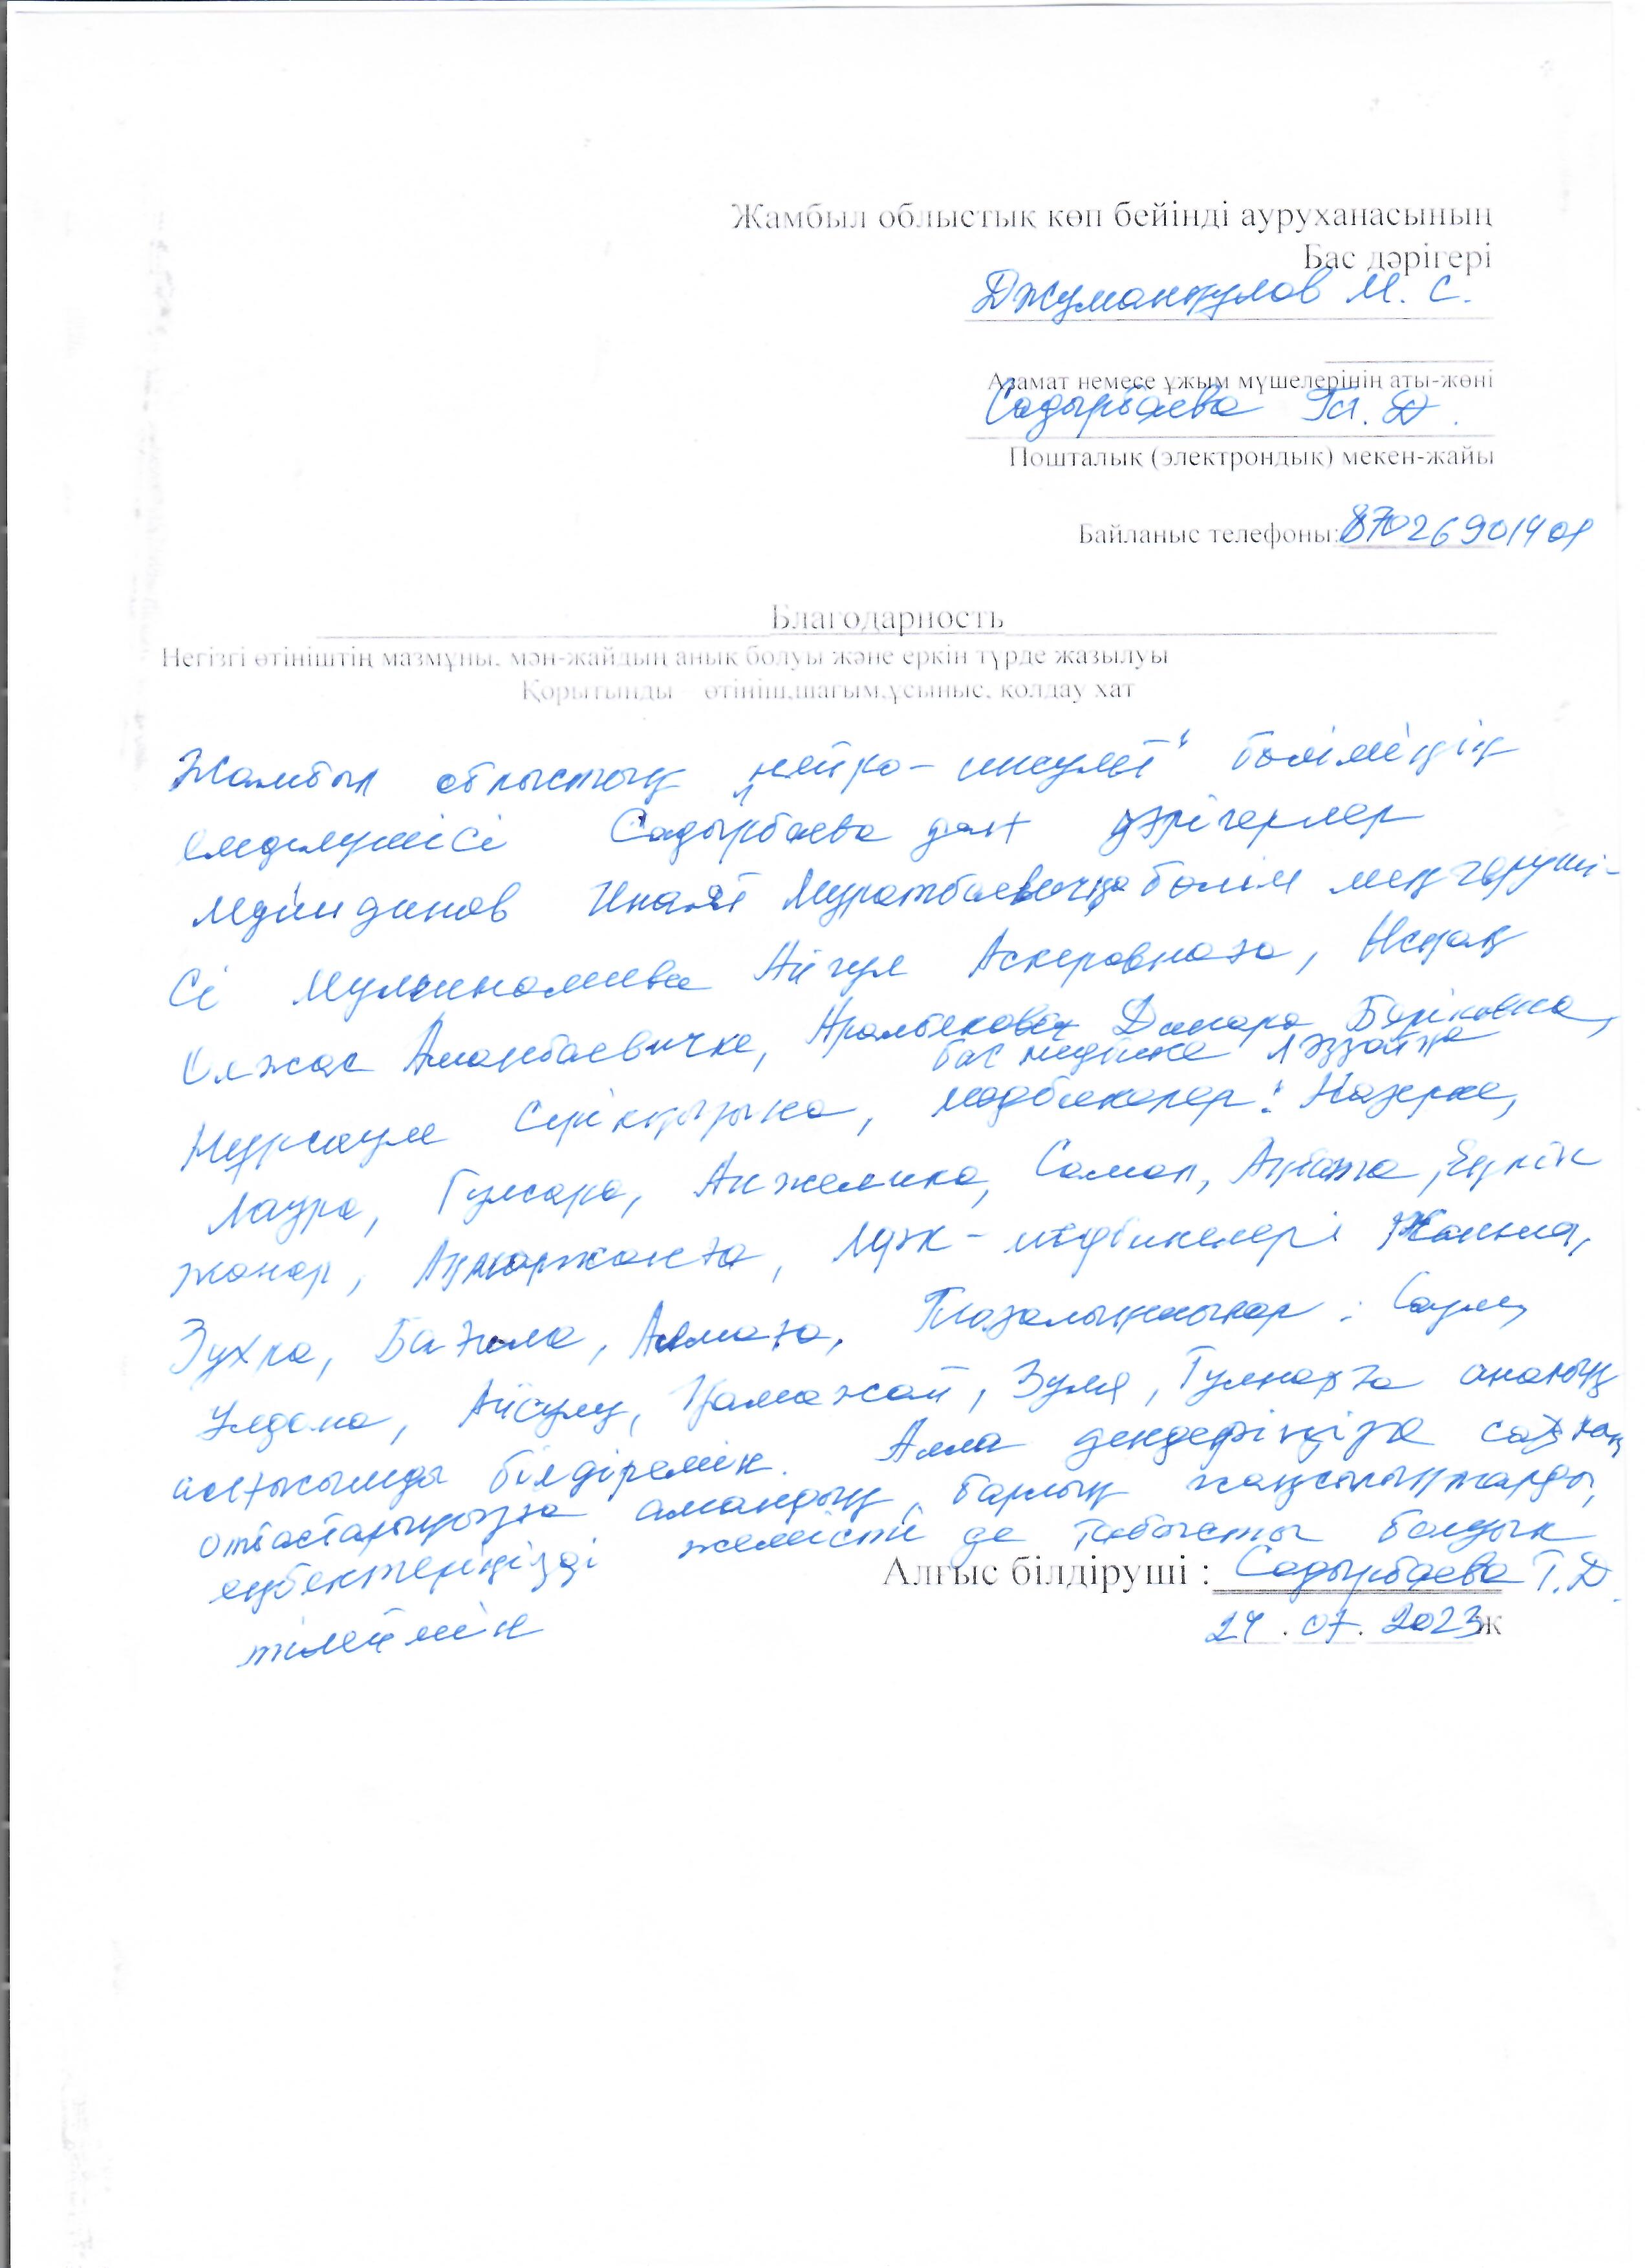 Жамбыл облыстық көп бейінді ауруханасының
Бас дәрігері
Джуманкулов М. С.
Азамат немесе ұжым мүшелерінің аты-жөні
Садырбаева Т. Д.
Пошталық (электрондық) мекен-жайы
Байланыс телефоны: 87026901401
Благодарность
Негізгі өтініштің мазмұны, мән-жайдың анық болуы және еркін түрде жазылуы
Қорытынды – өтініш,шағым,ұсыныс, қолдау хат
Жамбыл облыстық "нейро-инсульт" бөлімінің
емделушісі Садырбаева дан дәрігерлер
Муратбаевичқа бөлім меңгеруші-
сі Айгул Аскеровнаға,
Олжас Аманбаевичке, Динара Бериковна,
бас медбике Ләззатқа
Нұрсауле Серікқызына, медбикелер: Назерке,
Лаура, Гулсара, Анжелика, Самал, Еңлік
жанар, медбикелері Жанна,
Зухра, Бағила, Алмаға, Тазалықшылар: Сауле,
Улдана, Айсулу, Зуля, Гулнарға аналық
алғысымды білдіремін. Алла дендеріңізге саулық
отбастарыңызға амандық, барлық жақсылықтарды,
еңбектеріңізді жемісті де табысты болдық
тілеймін
Алғыс білдіруші : Садырбаева Т.Д.
24 . 07. 2023ж